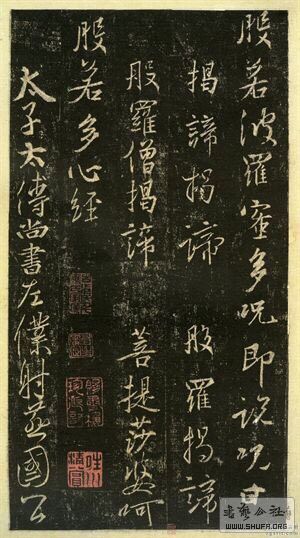 般若波羅蜜多咒即說咒曰
揭諦揭諦 般羅揭諦
般羅僧揭諦 菩提莎婆呵
般若多心經
太子太傅尚書左僕射燕國公
書藝公社
WWW.SHUFA.ORG